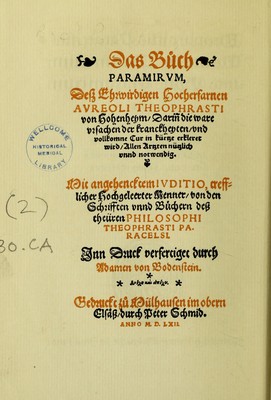 Das Bůch
PARAMIRVM,
Deß Ehrwirdigen Hocherfarnen
AVREOLI THEOPHRASTI
von Hohenheym / Dariñ die ware
vrsachen der kranckheyten / vnd
vollkomne Cur in kürtze erkleret
wird / Allen Artzten nützlich
vnnd notwendig.
WELLCOME
HISTORICAL
MEDICAL
LIBRARY
(2)
30.CA
Mit angehencktem IVDITIO, treff-
licher Hochgeleerter Menner / von den
Schrifften vnnd Büchern deß
theüren PHILOSOPHI
THEOPHRASTI PA
RACELSI.
Inn Druck verfertiget durch
Adamen von Bodenstein.
Gedruckt zů Mülhausen im obern
Elsäß / durch Peter Schmid.
ANNO M. D. LXII